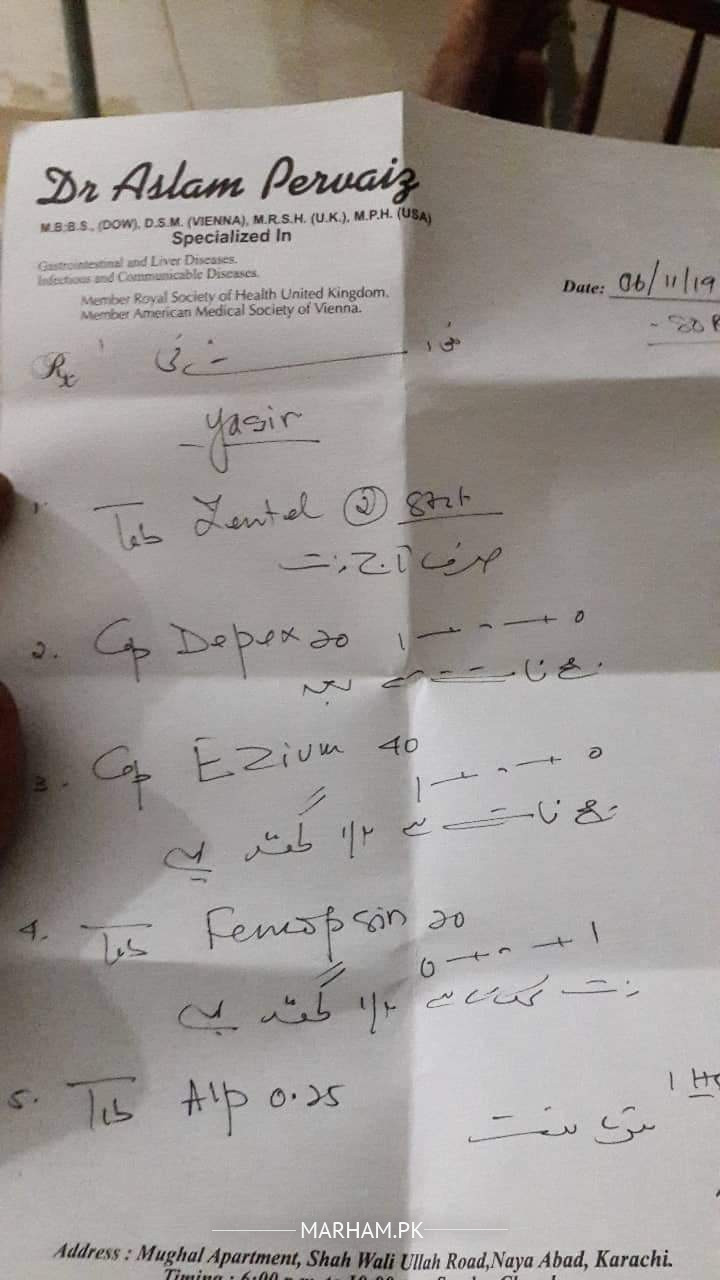 Dr Aslam Pervaiz
M.B.B.S., (DOW), D.S.M. (VIENNA), M.R.S.H. (U.K.), M.P.H. (USA)
Specialized In
Gastrointestinal and Liver Diseases.
Infectious and Communicable Diseases.
Member Royal Society of Health United Kingdom.
Member American Medical Society of Vienna.
Date: 06/11/19
Rx
Yasir
1. Tab Zentel (2) Stat
صرف آج رات
2. Cap Depex 20 1 + - + 0
بعد
3. Cap Ezium 40 1 + - + 0
سے ۱/۲ گھنٹہ پہلے
4. Tab Femopsin 20 0 + - + 1
رات کھانے سے ۱/۲ گھنٹہ پہلے
5. Tab Alp 0.25
MARHAM.PK
Address : Mughal Apartment, Shah Wali Ullah Road,Naya Abad, Karachi.